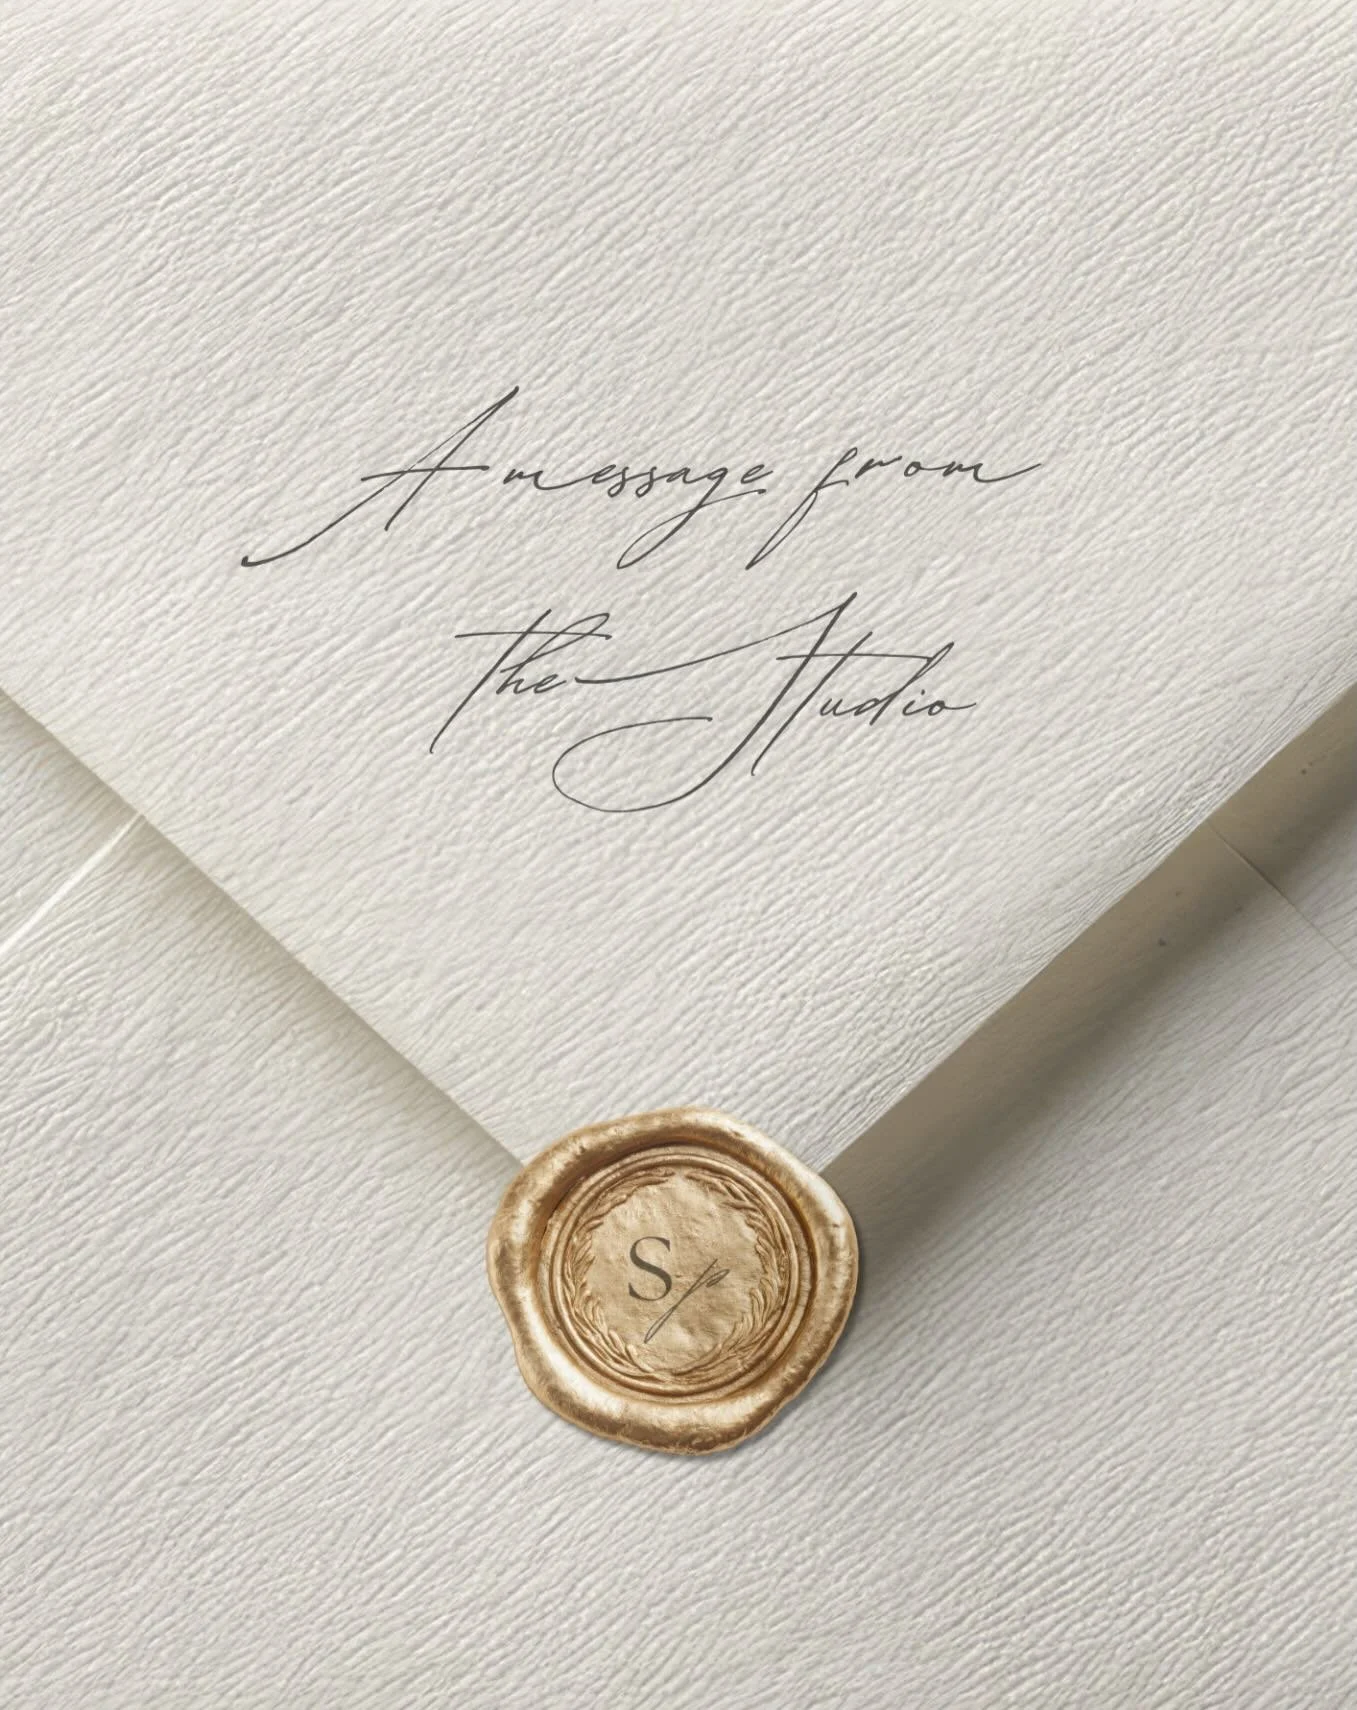 A message from
the Studio
Sp